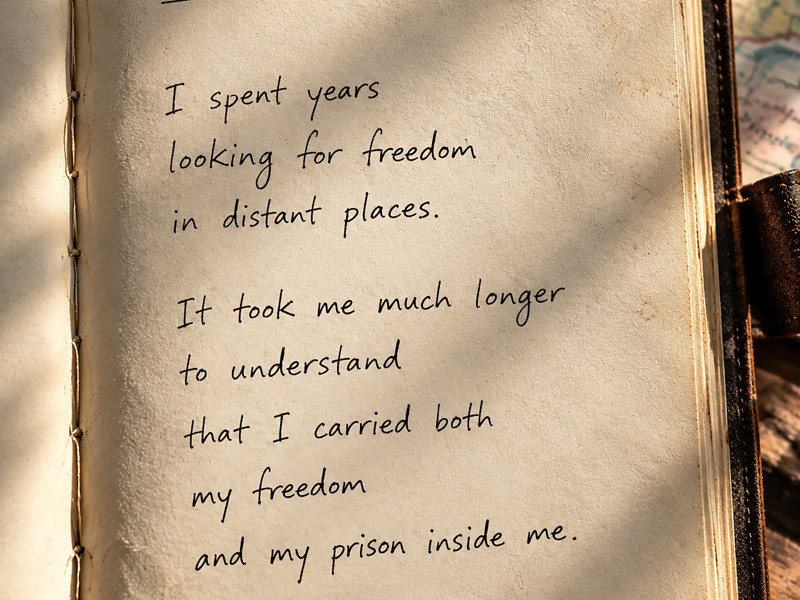 I spent years
looking for freedom
in distant places.
It took me much longer
to understand
that I carried both
my freedom
and my prison inside me.